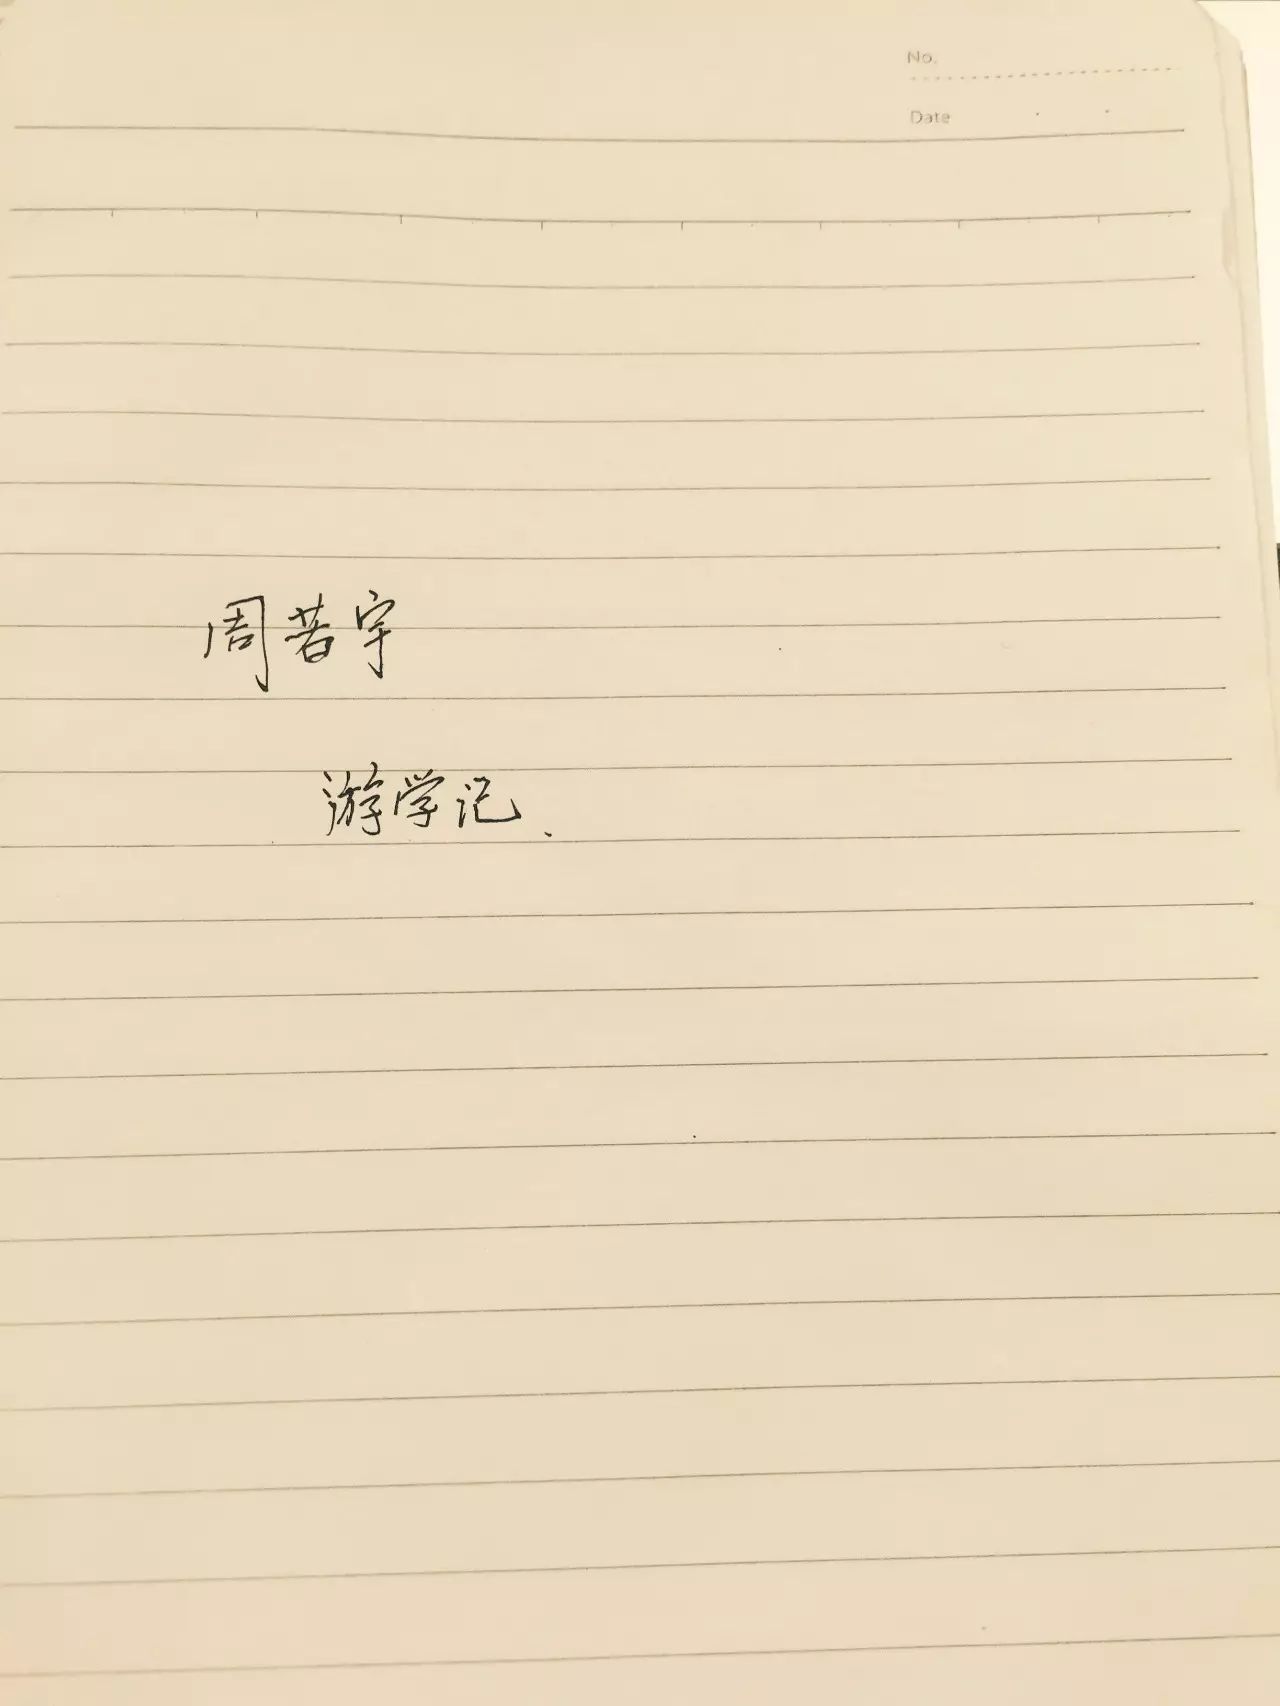 No.
Date
周若宇
游学记.